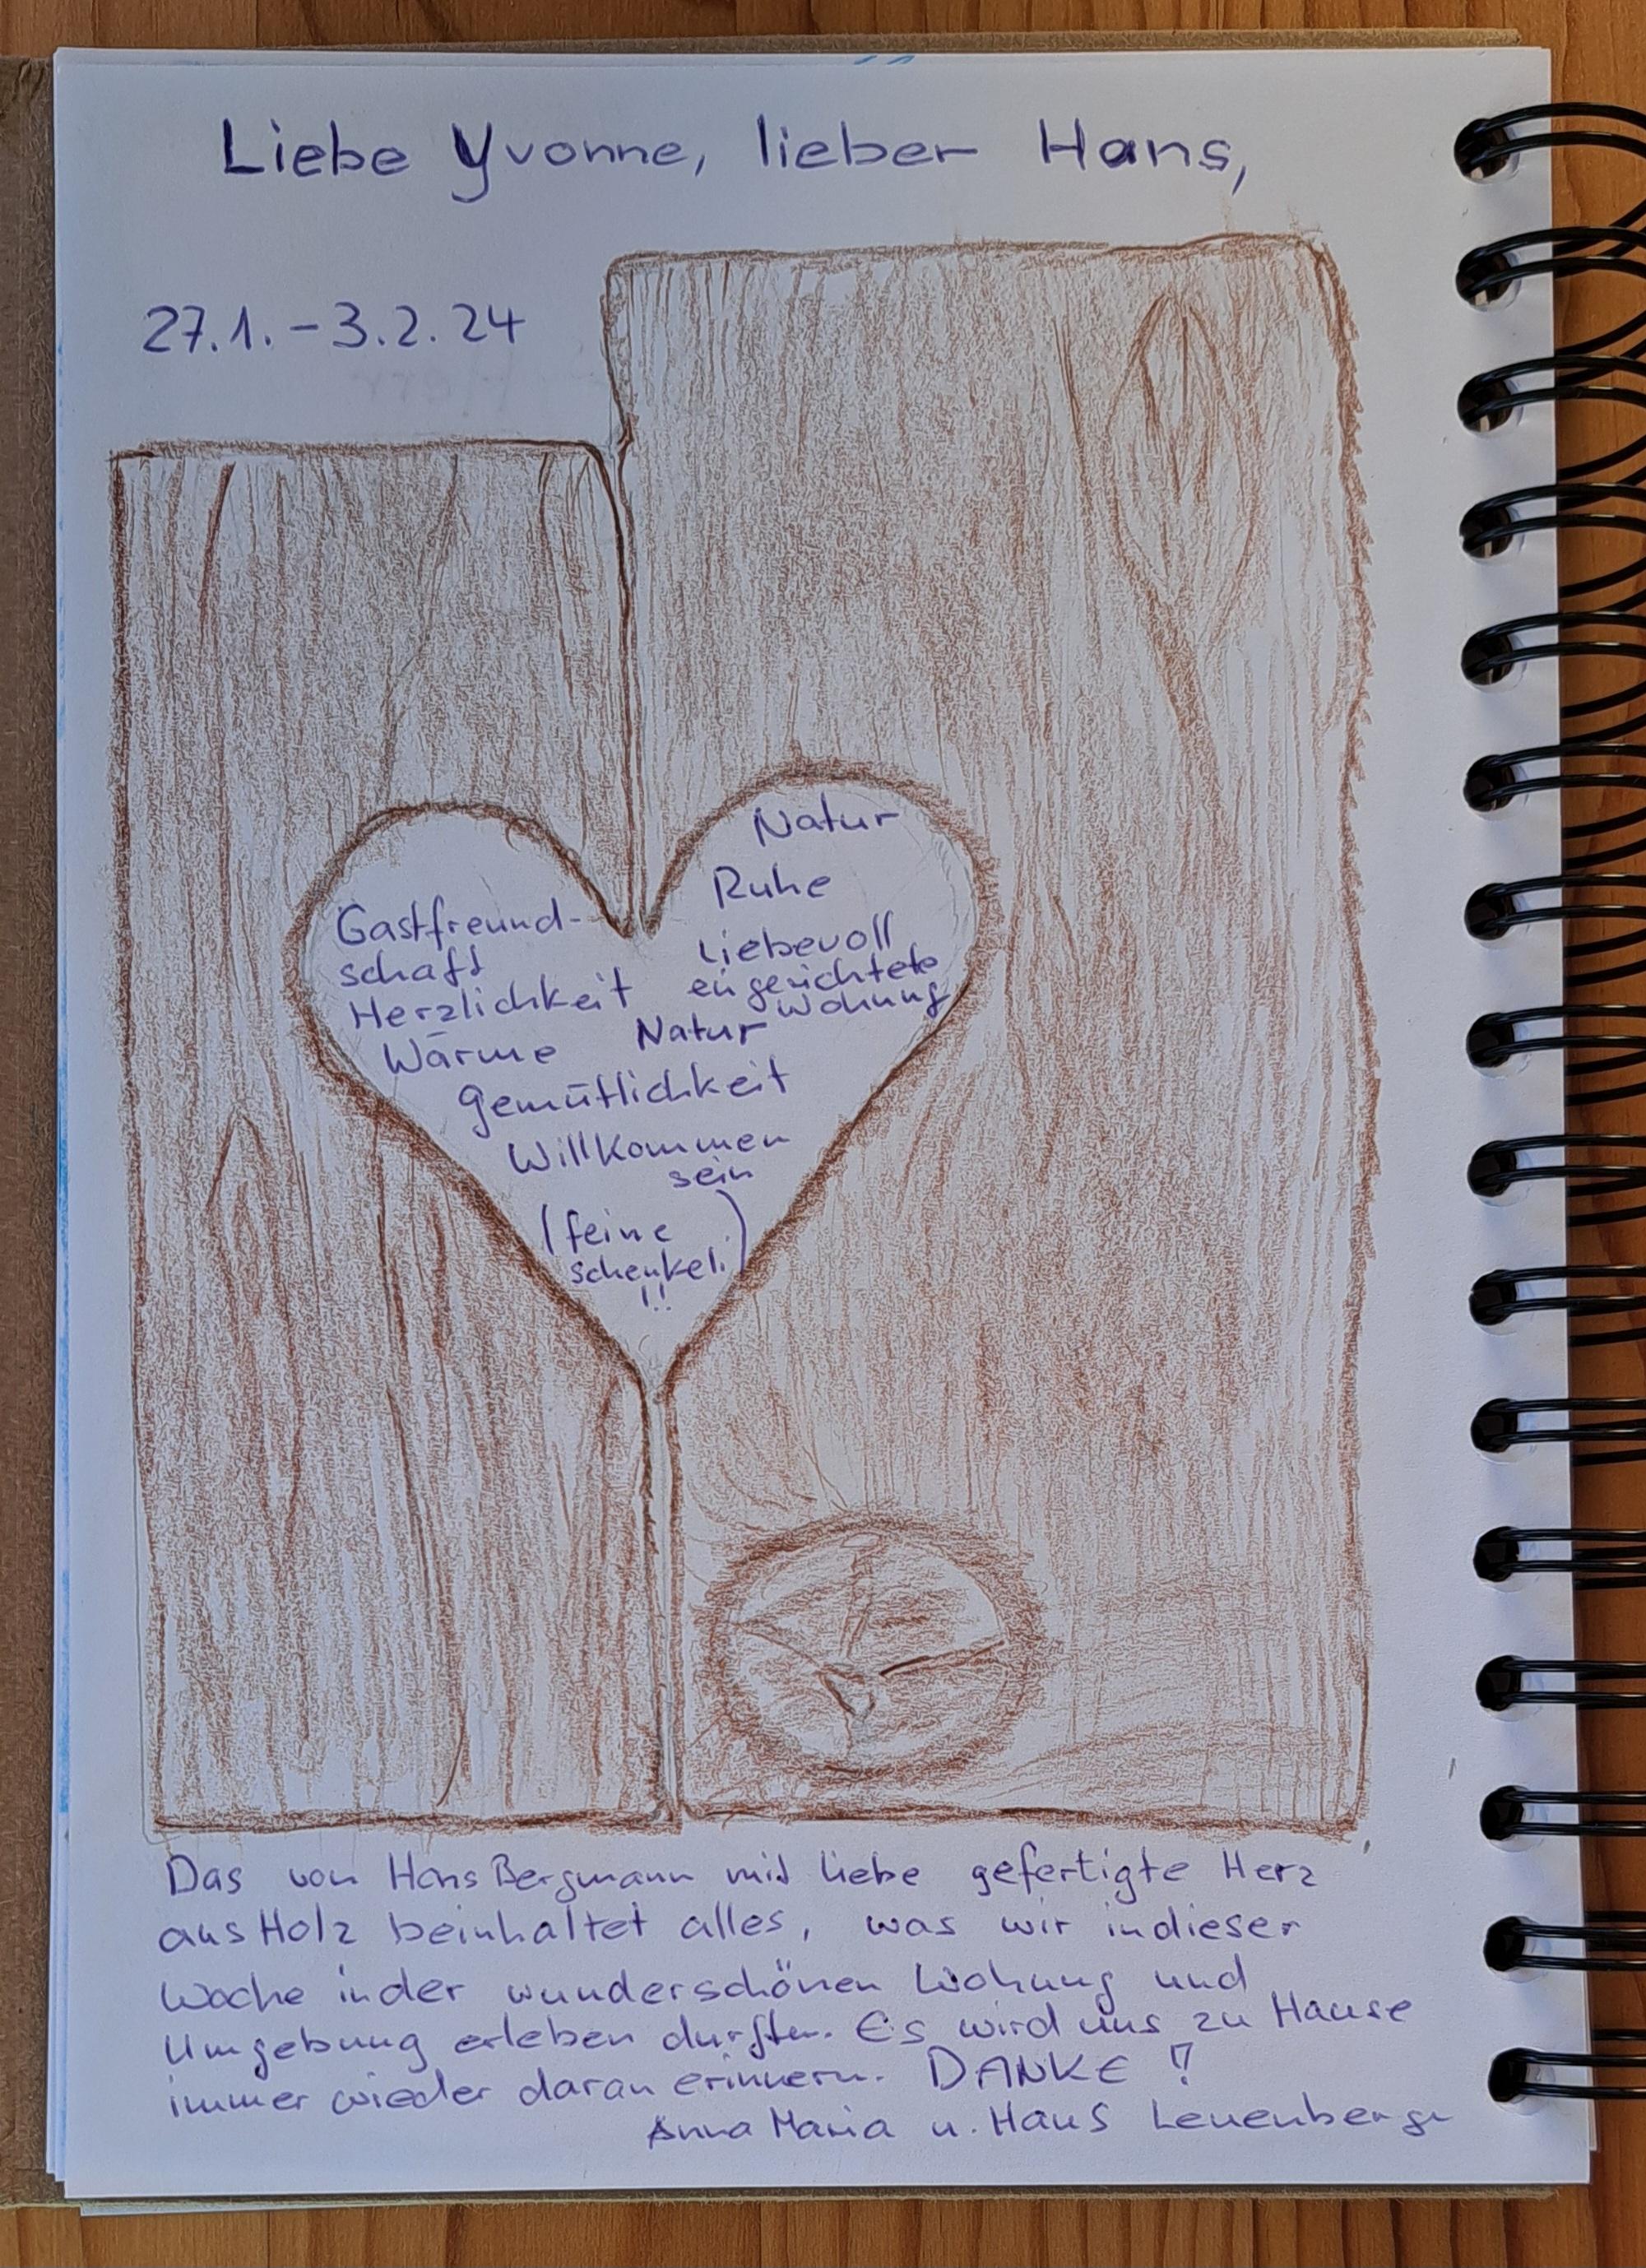 Liebe Yvonne, lieber Hans,
27.1. - 3.2.24
Gastfreund-
schaft
Herzlichkeit
Wärme
Natur
Ruhe
Liebevoll
eingerichtete
Wohnung
Natur
Gemütlichkeit
Willkommen
sein
(feine
Schenkeli)
!!
Das von Hans Bergmann mit Liebe gefertigte Herz
aus Holz beinhaltet alles, was wir in dieser
Woche in der wunderschönen Wohnung und
Umgebung erleben durften. Es wird uns zu Hause
immer wieder daran erinnern. DANKE !!
Anna Maria u. Hans Leuenberger